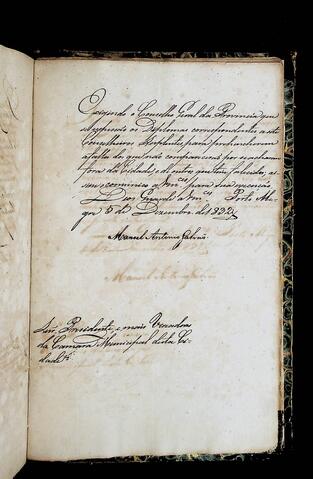 Exigindo o Conselho Geral da Provincia que
se expeção os Diplomas correspondentes a sete
Conselheiros Suplentes, para preencherem
a falta dos que não comparecerão por se acharem
fora da Cidade, e de outros que tem fallecido, as
sim communico a Vm.ces para sua execução
Deos Guarde a Vm.ces Porto Ale
gre 5 de Dezembro de 1832
Manoel Antonio Galvão
Snr.es Presidente, e mais Vereadores
da Camara Municipal desta Ci
dade